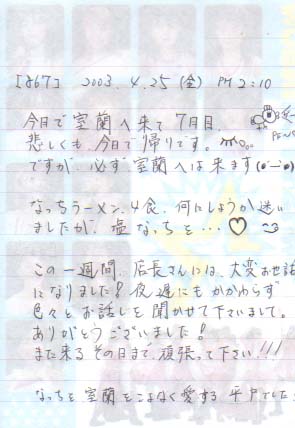 [867] 2003.4.25(金) PM2:10
今日で室蘭へ来て7日目、
悲しくも、今日で帰りです。
ですが、必ず室蘭へは来ます
なっちラーメン、4食、何にしようか迷い
ましたが、塩なっちを…♡
この一週間、店長さんには、大変お世話
になりました!夜遅にもかかわらず
色々とお話しを聞かせて下さいまして。
ありがとうございました!
また来るその日まで、頑張って下さい!!!
なっちと室蘭をこよなく愛する 平戸でした